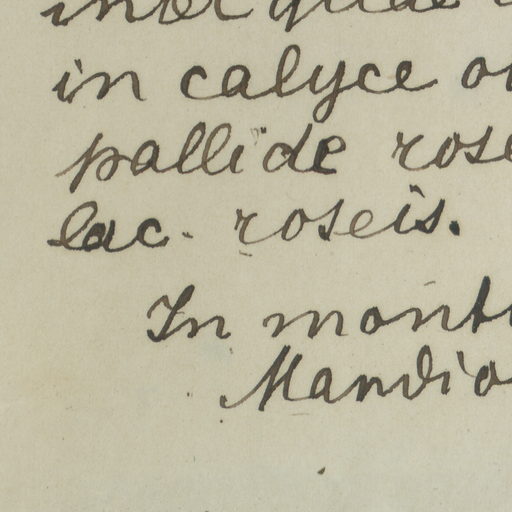 in calyce
pallide rose
lac. roseis.
In mont
Mandio